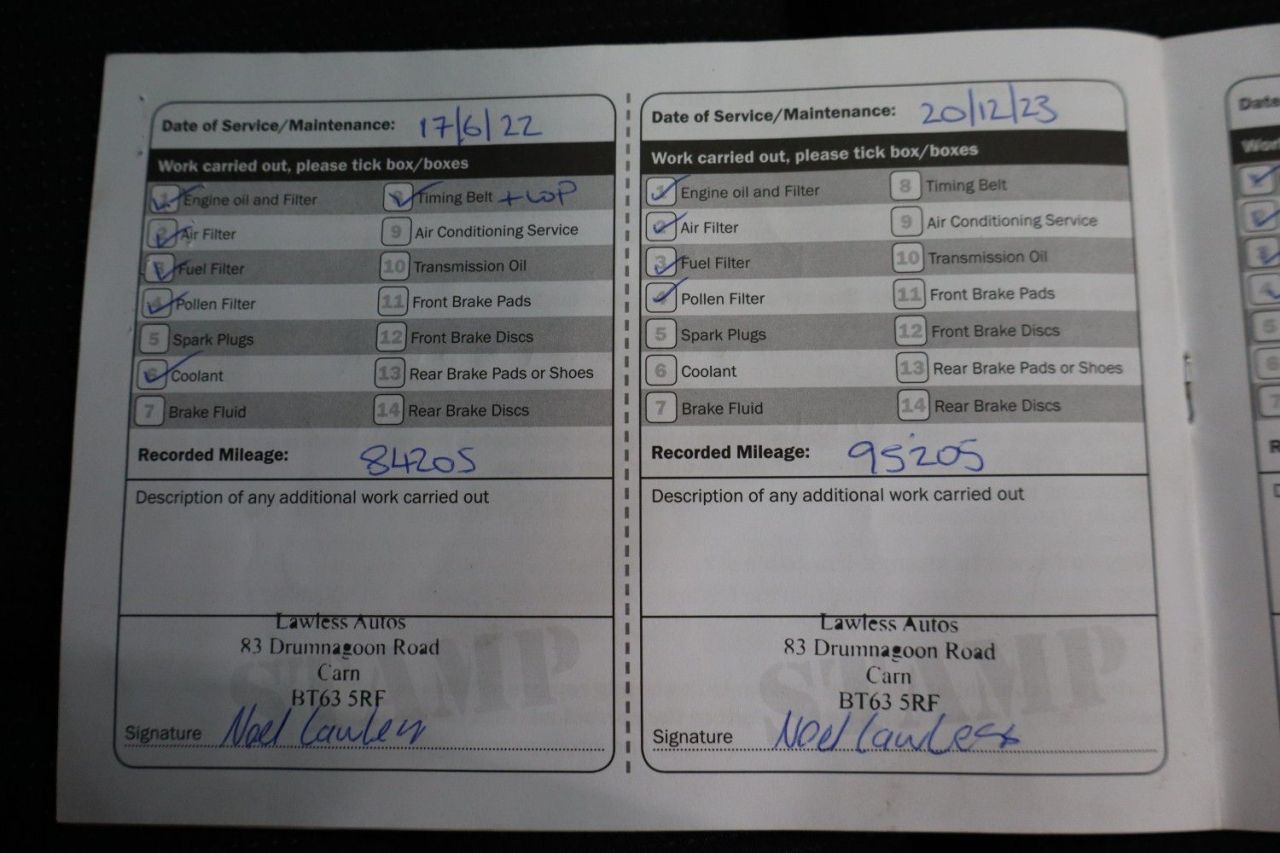 Date of Service/Maintenance: 17/6/22
Work carried out, please tick box/boxes
1 Engine oil and Filter
2 Air Filter
3 Fuel Filter
4 Pollen Filter
5 Spark Plugs
6 Coolant
7 Brake Fluid
8 Timing Belt + WP
9 Air Conditioning Service
10 Transmission Oil
11 Front Brake Pads
12 Front Brake Discs
13 Rear Brake Pads or Shoes
14 Rear Brake Discs
Recorded Mileage: 84205
Description of any additional work carried out
STAMP
Lawless Autos
83 Drumnagoon Road
Carn
BT63 5RF
Signature Noel Lawless
Date of Service/Maintenance: 20/12/23
Work carried out, please tick box/boxes
1 Engine oil and Filter
2 Air Filter
3 Fuel Filter
4 Pollen Filter
5 Spark Plugs
6 Coolant
7 Brake Fluid
8 Timing Belt
9 Air Conditioning Service
10 Transmission Oil
11 Front Brake Pads
12 Front Brake Discs
13 Rear Brake Pads or Shoes
14 Rear Brake Discs
Recorded Mileage: 95205
Description of any additional work carried out
STAMP
Lawless Autos
83 Drumnagoon Road
Carn
BT63 5RF
Signature Noel Lawless
Date